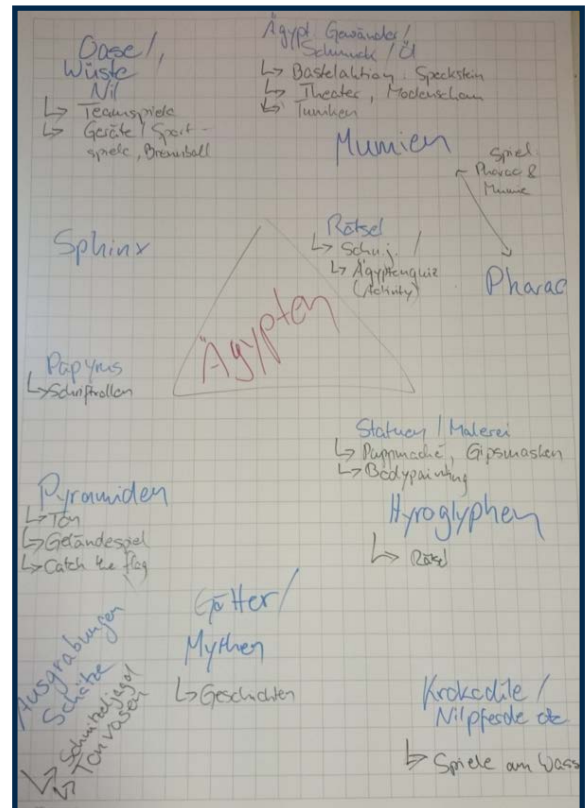 Oase /,
Wüste
Nil
↳ Teamspiele
↳ Geräte / Sport-
spiele, Brennball
Ägypt. Gewänder /
Schmuck / Öl
↳ Bastelaktion. Speckstein
↳ Theater, Modenschau
↳
Mumien
Spiel
Pharao &
Mumie
Pharao
Sphinx
Rätsel
↳ /
↳ Ägyptenquiz
(Activity)
Ägypten
Papyrus
↳ Schriftrollen
Statuen / Malerei
↳ Pappmaché, Gipsmasken
↳ Bodypainting
Pyramiden
↳ Ton
↳ Geländespiel
↳ Catch the flag
Hyroglyphen
↳ Rätsel
Ausgrabungen
Schätze
↳ Schnitzeljagd
↳ Tonvasen
Götter /
Mythen
↳ Geschichten
Krokodile /
Nilpferde etc
↳ Spiele am Wass